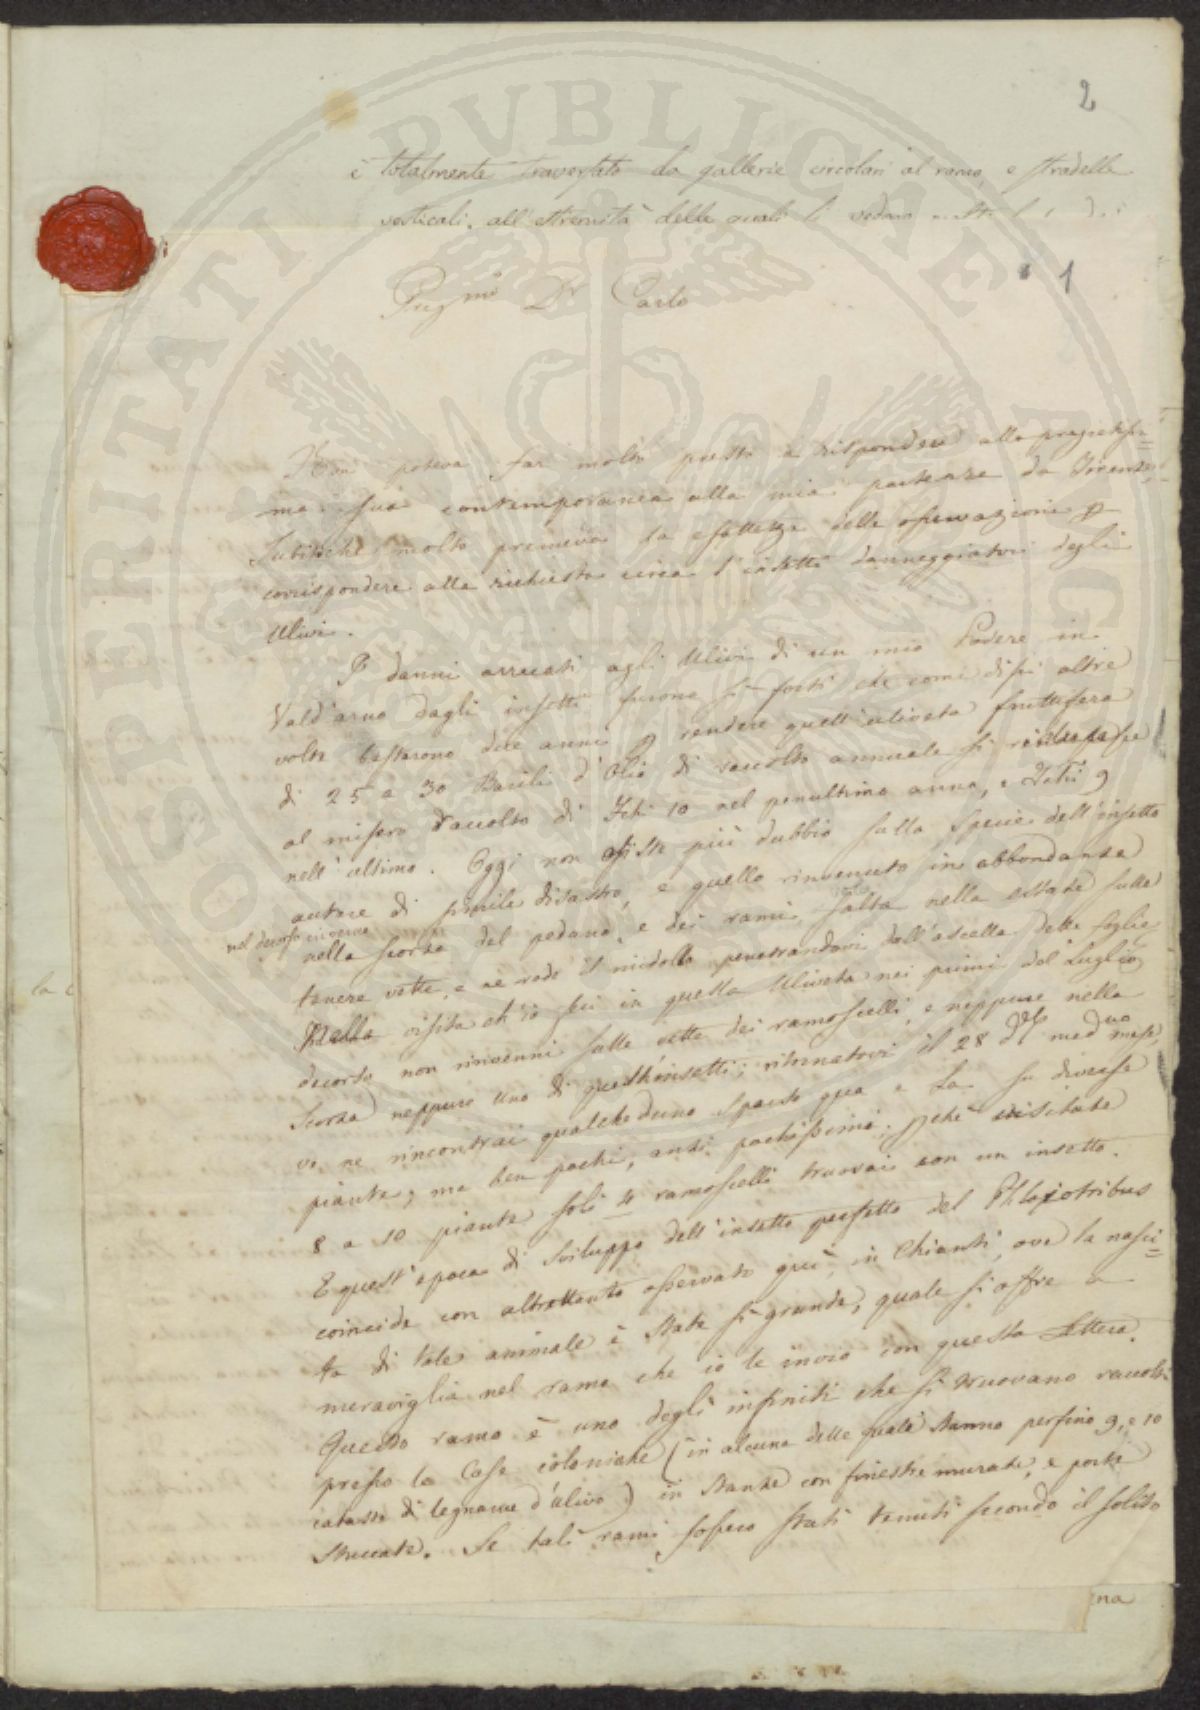 2
è totalmente traversato da gallerie circolari al ramo, e stradelle
verticali, all'estremità delle quali si vedono
1
Preg.mo D.r Carlo
Non poteva far molto presto a rispondere alla pregiatissi=
ma sua contemporanea alla mia partenza da Firenze,
subitochè molto premeva la esattezza delle osservazioni p
corrispondere alla richiesta circa l'insetti danneggiatori degli
Ulivi.
I danni arrecati agli Ulivi di un mio Podere in
Vald'arno dagli insetti furono sì forti che come dissi altre
volte bastarono due anni p rendere quell'uliveta fruttifera
di 25 a 30 Barili d'Olio di raccolto annuale si riducesse
al misero raccolto di 10 nel penultimo anno, e 9
nell'ultimo. Oggi non esiste più dubbio sulla specie dell'insetto
autore di simile disastro, e quello rinvenuto in abbondanza
nel decorso inverno
nella scorza del pedano, e dei rami, salta nella estate sulle
tenere vette, e ne rode il midollo penetrandovi dall'ascella delle foglie.
Nella visita ch'io feci in questa Uliveta nei primi del Luglio
decorso non rinvenni sulle vette dei ramoscelli, e neppure nella
scorza neppure uno di questi insetti; ritornatovi il 28 d.º med.mo mese,
vi ne rincontrai qualcheduno sparso qua e la su diverse
piante, ma ben pochi, anzi pochissimi, pchè visitate
8 a 10 piante soli 4 ramoscelli trovai con un insetto.
E quest'epoca di sviluppo dell'insetto perfetto del Phloiotribus
coincide con altrettanto osservato quì in Chianti, ove la nasci=
ta di tale animale è stata sì grande, quale si offre a
meraviglia nel ramo che io le invio con questa Lettera.
Questo ramo è uno degli infiniti che si truovano raccolti
presso le Case coloniche (in alcune delle quali stanno perfino 9, e 10
cataste di legname d'ulivo) in stanze con finestre murate, e porte
stuccate. Se tali rami fossero stati tenuti secondo il solito
na